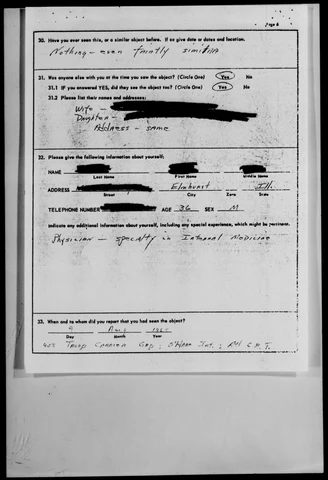 Page 6
30. Have you ever seen this, or a similar object before. If so give date or dates and location.
Nothing - even faintly similar
31. Was anyone else with you at the time you saw the object? (Circle One) Yes No
31.1 IF you answered YES, did they see the object too? (Circle One) Yes No
31.2 Please list their names and addresses:
Wife -
Daughter -
Address - same
32. Please give the following information about yourself:
NAME
Last Name First Name Middle Name
ADDRESS Elmhurst Ill.
Street City Zone State
TELEPHONE NUMBER AGE 36 SEX M
Indicate any additional information about yourself, including any special experience, which might be pertinent.
Physician - specialty in Internal Medicine
33. When and to whom did you report that you had seen the object?
9 Aug 1965
Day Month Year
Troop Carrier Grp; O'Hare Int.;